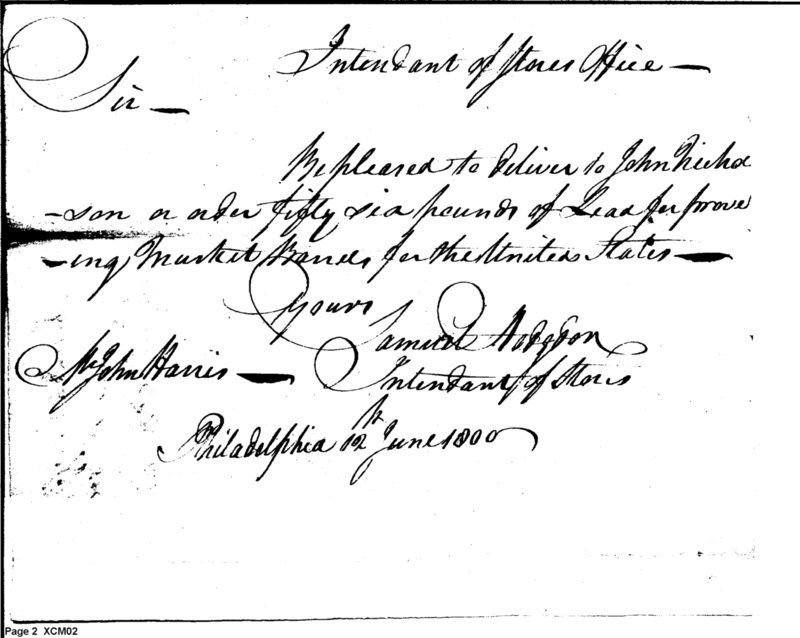 Intendant of Stores Office —
Sir —
Be pleased to deliver to John Nichol
-son or order fifty six pounds of Lead for prove
-ing Musket Barrels for the United States —
Yours
Samuel Hodgdon
Mr John Harris — Intendant of Stores
Philadelphia 12th June 1800
Page 2 XCM02